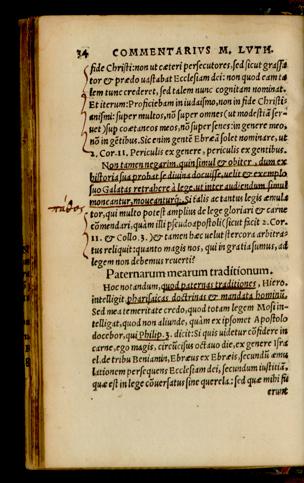 34 COMMENTARIVS M. LVTH.
fide Christi: non ut cæteri persecutores, sed sicut grassa
tor & prædo uastabat Ecclesiam dei: non quod eam ta
lem tunc crederet, sed talem nunc cognitam nominat.
Et iterum: Proficiebam in iudaismo, non in fide Christi-
anismi: super multos, nō super omnes (ut modestiā ser-
uet) sup coætaneos meos, nō super senes: in genere meo,
nō in gētibus. Sic enim gentē Ebræā solet nominare, ut
2. Cor. 11. Periculis ex genere, periculis ex gentibus.
Non tamen negarim, quin simul & obiter, dum ex
historia sua probat se diuina docuisse, uelit & exemplo
suo Galatas retrahere à lege, ut inter audiendum simul
moneantur, moueanturq;. Si talis ac tantus legis æmula
πάθος
tor, qui multo potest amplius de lege gloriari & carne
cōmendari, quàm illi pseudoapostoli (sicut facit 2. Cor.
11. & Collo. 3.) & tamen hæc uelut stercora arbitra-
tus reliquit: quanto magis nos, qui in gratia sumus, ad
legem non debemus reuerti?
Paternarum mearum traditionum.
Hoc notandum, quod paternas traditiones, Hiero.
intelligit pharisaicas doctrinas & mandata hominū.
Sed mea temeritate credo, quod totam legem Mosi in-
telligat, quod non aliunde, quàm ex ipsomet Apostolo
docebor, qui Philip. 3. dicit: Si quis uidetur cōfidere in
carne, ego magis, circūcisus octauo die, ex genere Isra
el, de tribu Beniamin, Ebræus ex Ebræis, secundū æmu
lationem persequens Ecclesiam dei, secundum iustitiā,
quæ est in lege cōuersatus sine querela: sed quæ mihi fu
erunt